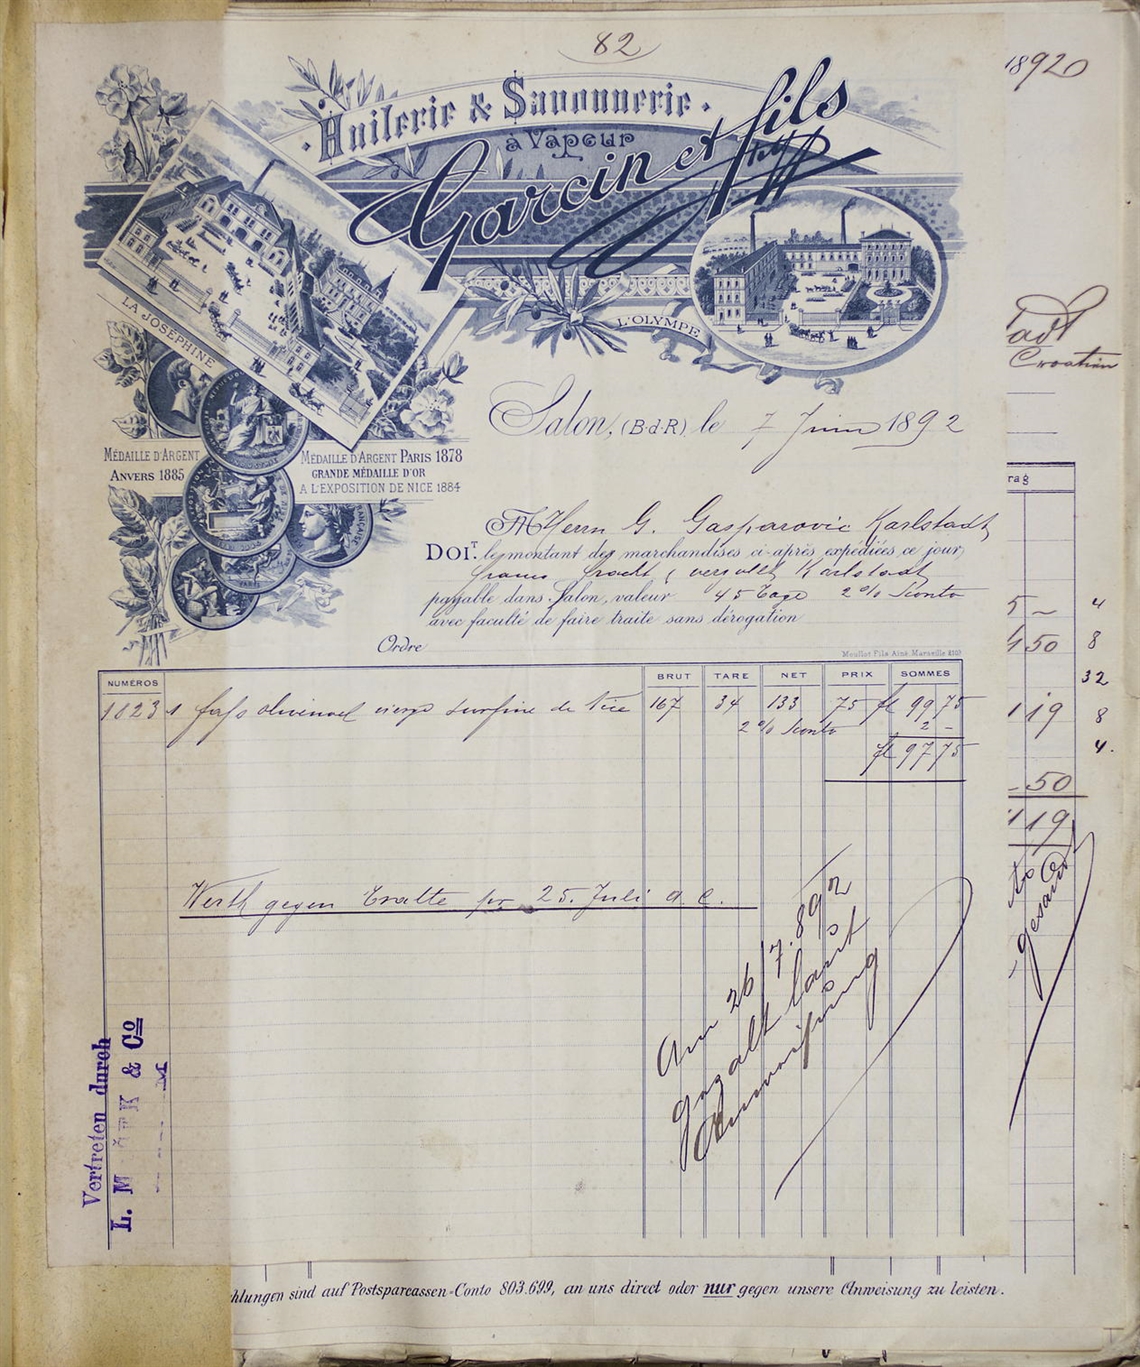 82
Huilerie & Savonnerie.
à Vapeur
Garcin et fils
LA JOSÉPHINE
L'OLYMPE
Salon, (B-d-R) le 7 Juin 1892
MÉDAILLE D'ARGENT
ANVERS 1885
MÉDAILLE D'ARGENT PARIS 1878
GRANDE MÉDAILLE D'OR
A L'EXPOSITION DE NICE 1884
Herrn G. Gasparovic Karlstadt
DOIT. le montant des marchandises ci-après expédiées ce jour,
franco Fracht & verzollt Karlstadt
payable dans Salon, valeur 45 Tage 2% Sconto
avec faculté de faire traite sans dérogation
Ordre
Moullot Fils Ainé. Marseille
NUMÉROS BRUT TARE NET PRIX SOMMES
1023 1 Fass Olivenoel vierge surfine de Nice 167 34 133 75 fl 99 75
2% Sconto 2 -
fl 97 75
Werth gegen Tratte pr 25. Juli a. c.
Am 26/7. 892
gezalt laut
Anweisung
Vertreten durch
L. M K & Co
M
1892
adt
Croatien
rag
5 ~ 4
50 8
32
19 8
4.
50
19
hlungen sind auf Postsparcassen-Conto 803.699, an uns direct oder nur gegen unsere Anweisung zu leisten.